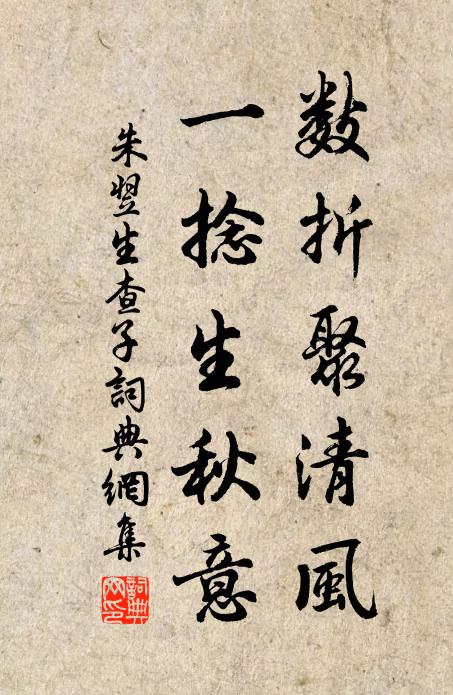 數折聚清風
一捻生秋意
朱翌生查子詞典網集
詞典
网印